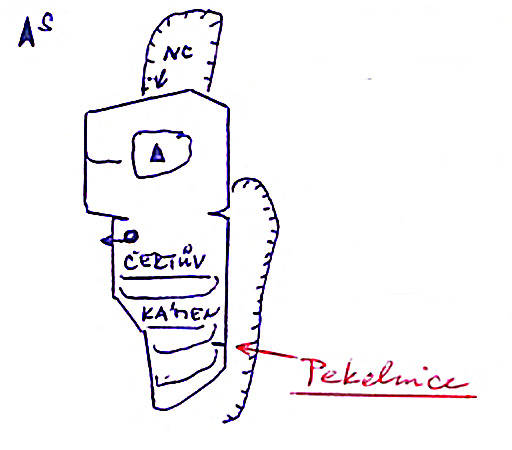 S
NC
ČERTŮV
KÁMEN
Pekelnice